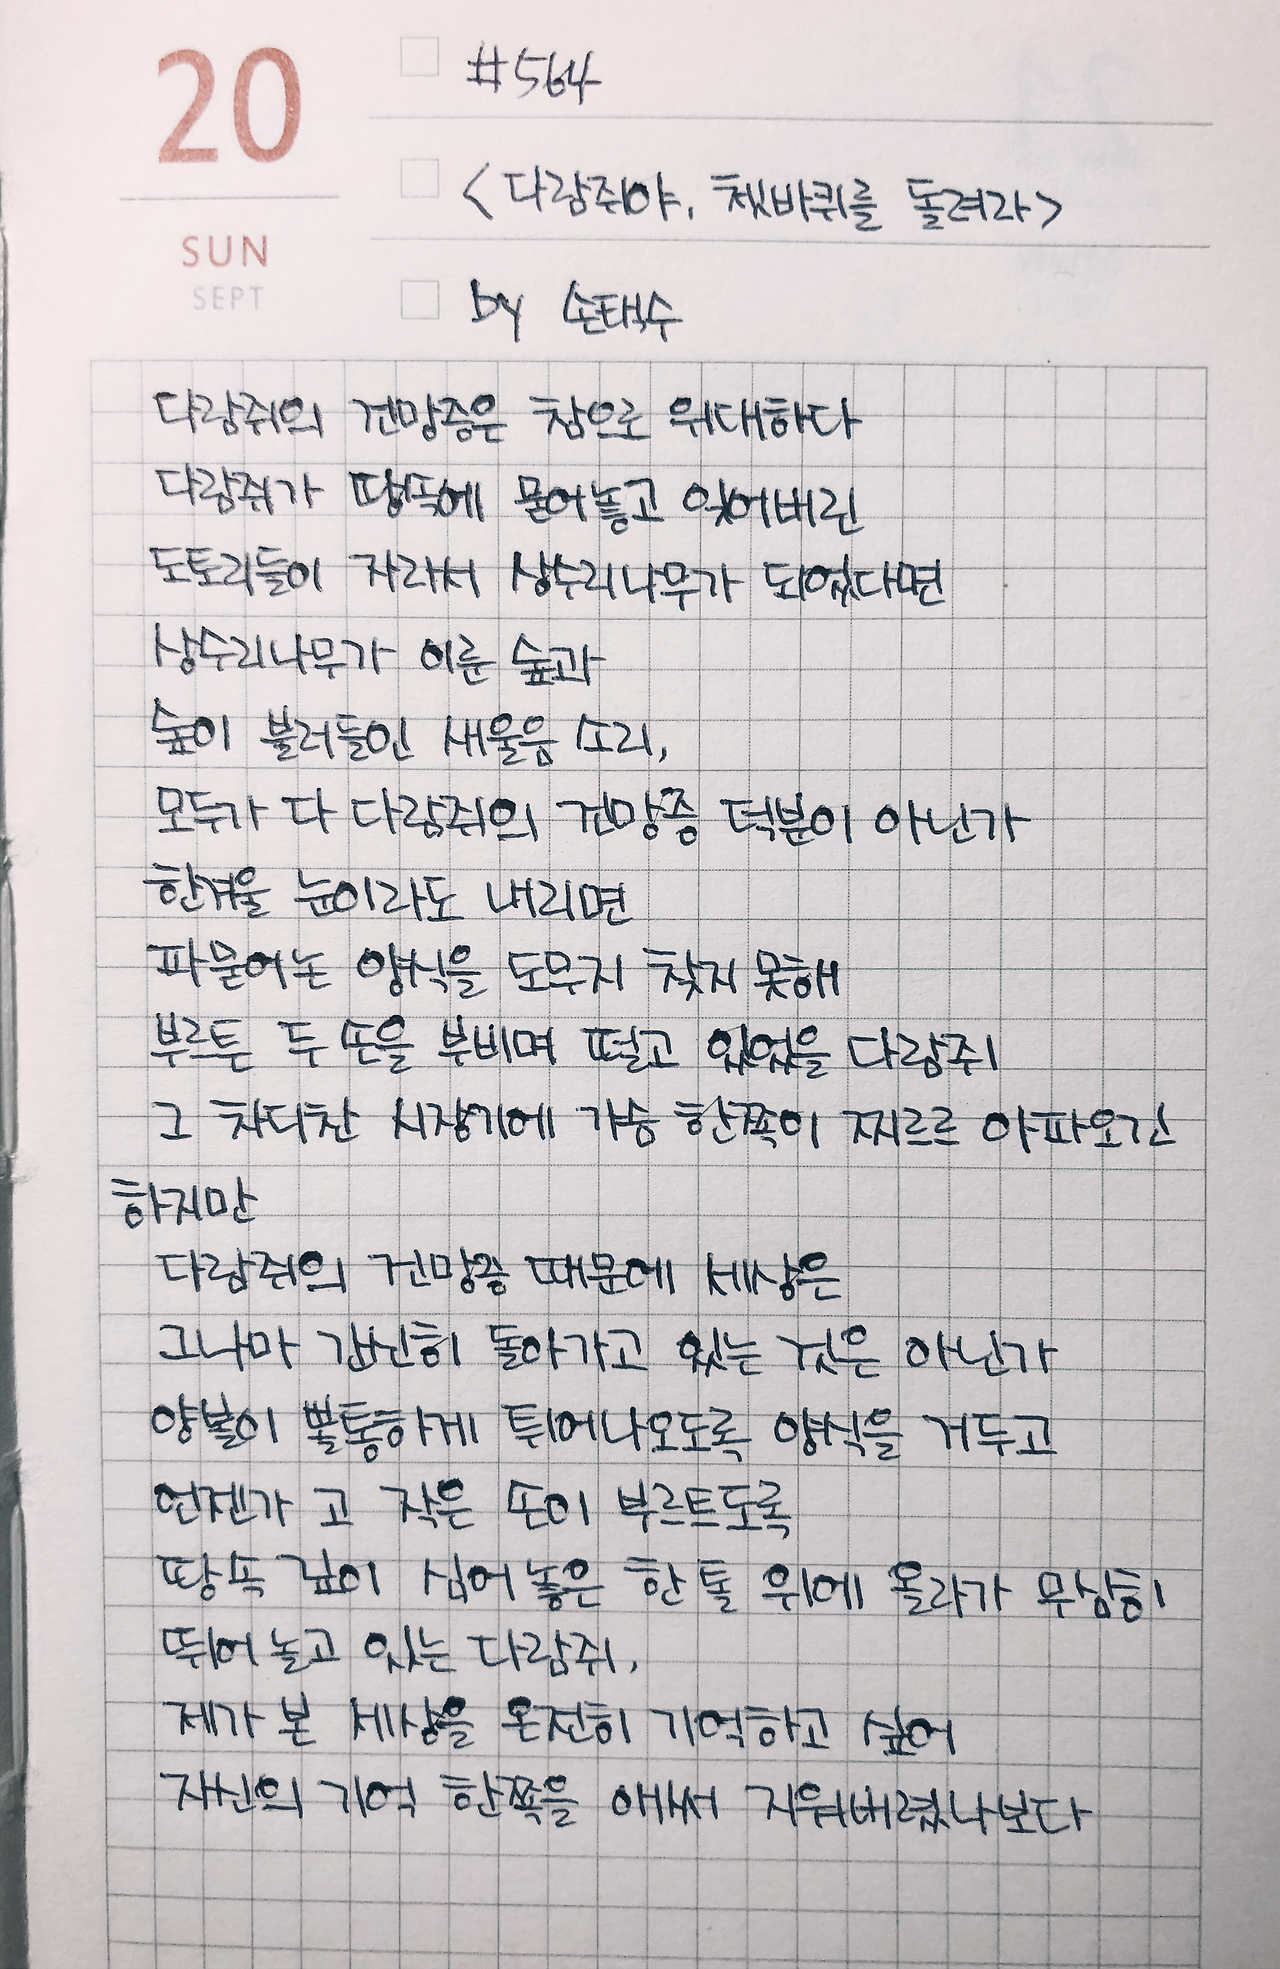 20
SUN
SEPT
#564
<다람쥐야, 쳇바퀴를 돌려라>
by 손택수
다람쥐의 건망증은 참으로 위대하다
다람쥐가 땅속에 묻어놓고 잊어버린
도토리들이 자라서 상수리나무가 되었다면
상수리나무가 이룬 숲과
숲이 불러들인 새울음 소리,
모두가 다 다람쥐의 건망증 덕분이 아닌가
한겨울 눈이라도 내리면
파묻어논 양식을 도무지 찾지 못해
부르튼 두 손을 부비며 떨고 있었을 다람쥐
그 차디찬 시장기에 가슴 한쪽이 찌르르 아파오긴
하지만
다람쥐의 건망증 때문에 세상은
그나마 간신히 돌아가고 있는 것은 아닌가
양볼이 뽈통하게 튀어나오도록 양식을 거두고
언젠가 고 작은 손이 부르트도록
땅 속 깊이 심어놓은 한 톨 위에 올라가 무심히
뛰어 놀고 있는 다람쥐,
제가 본 세상을 온전히 기억하고 싶어
자신의 기억 한쪽을 애써 지워버렸나보다